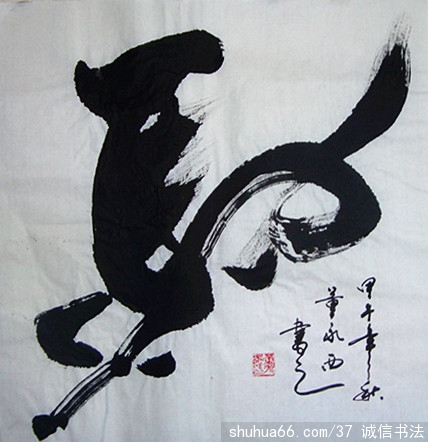 马
甲午年之秋
董永西
書之
shuhua66.com/37 诚信书法